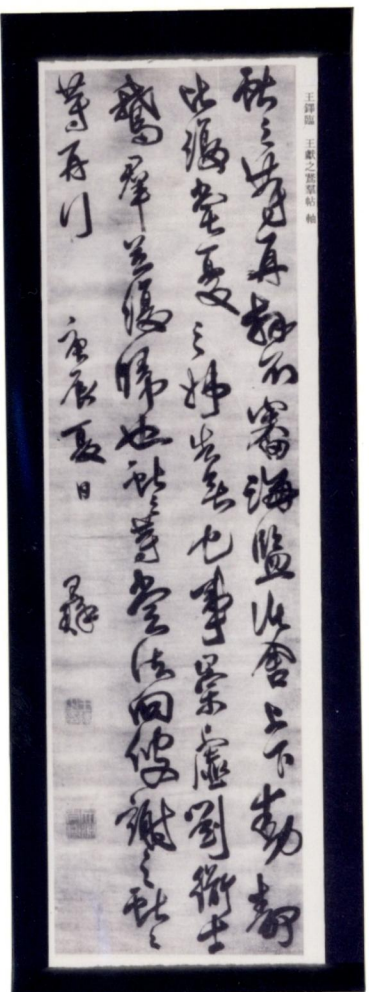 王鐸臨 王獻之鵞羣帖 軸
獻之等再拜不審海鹽諸舍上下動靜
比復常憂之姉告無它事崇虛劉道士
鵞羣並復歸也獻之等當須向彼謝之獻之
等再拜 庚辰夏日 王鐸